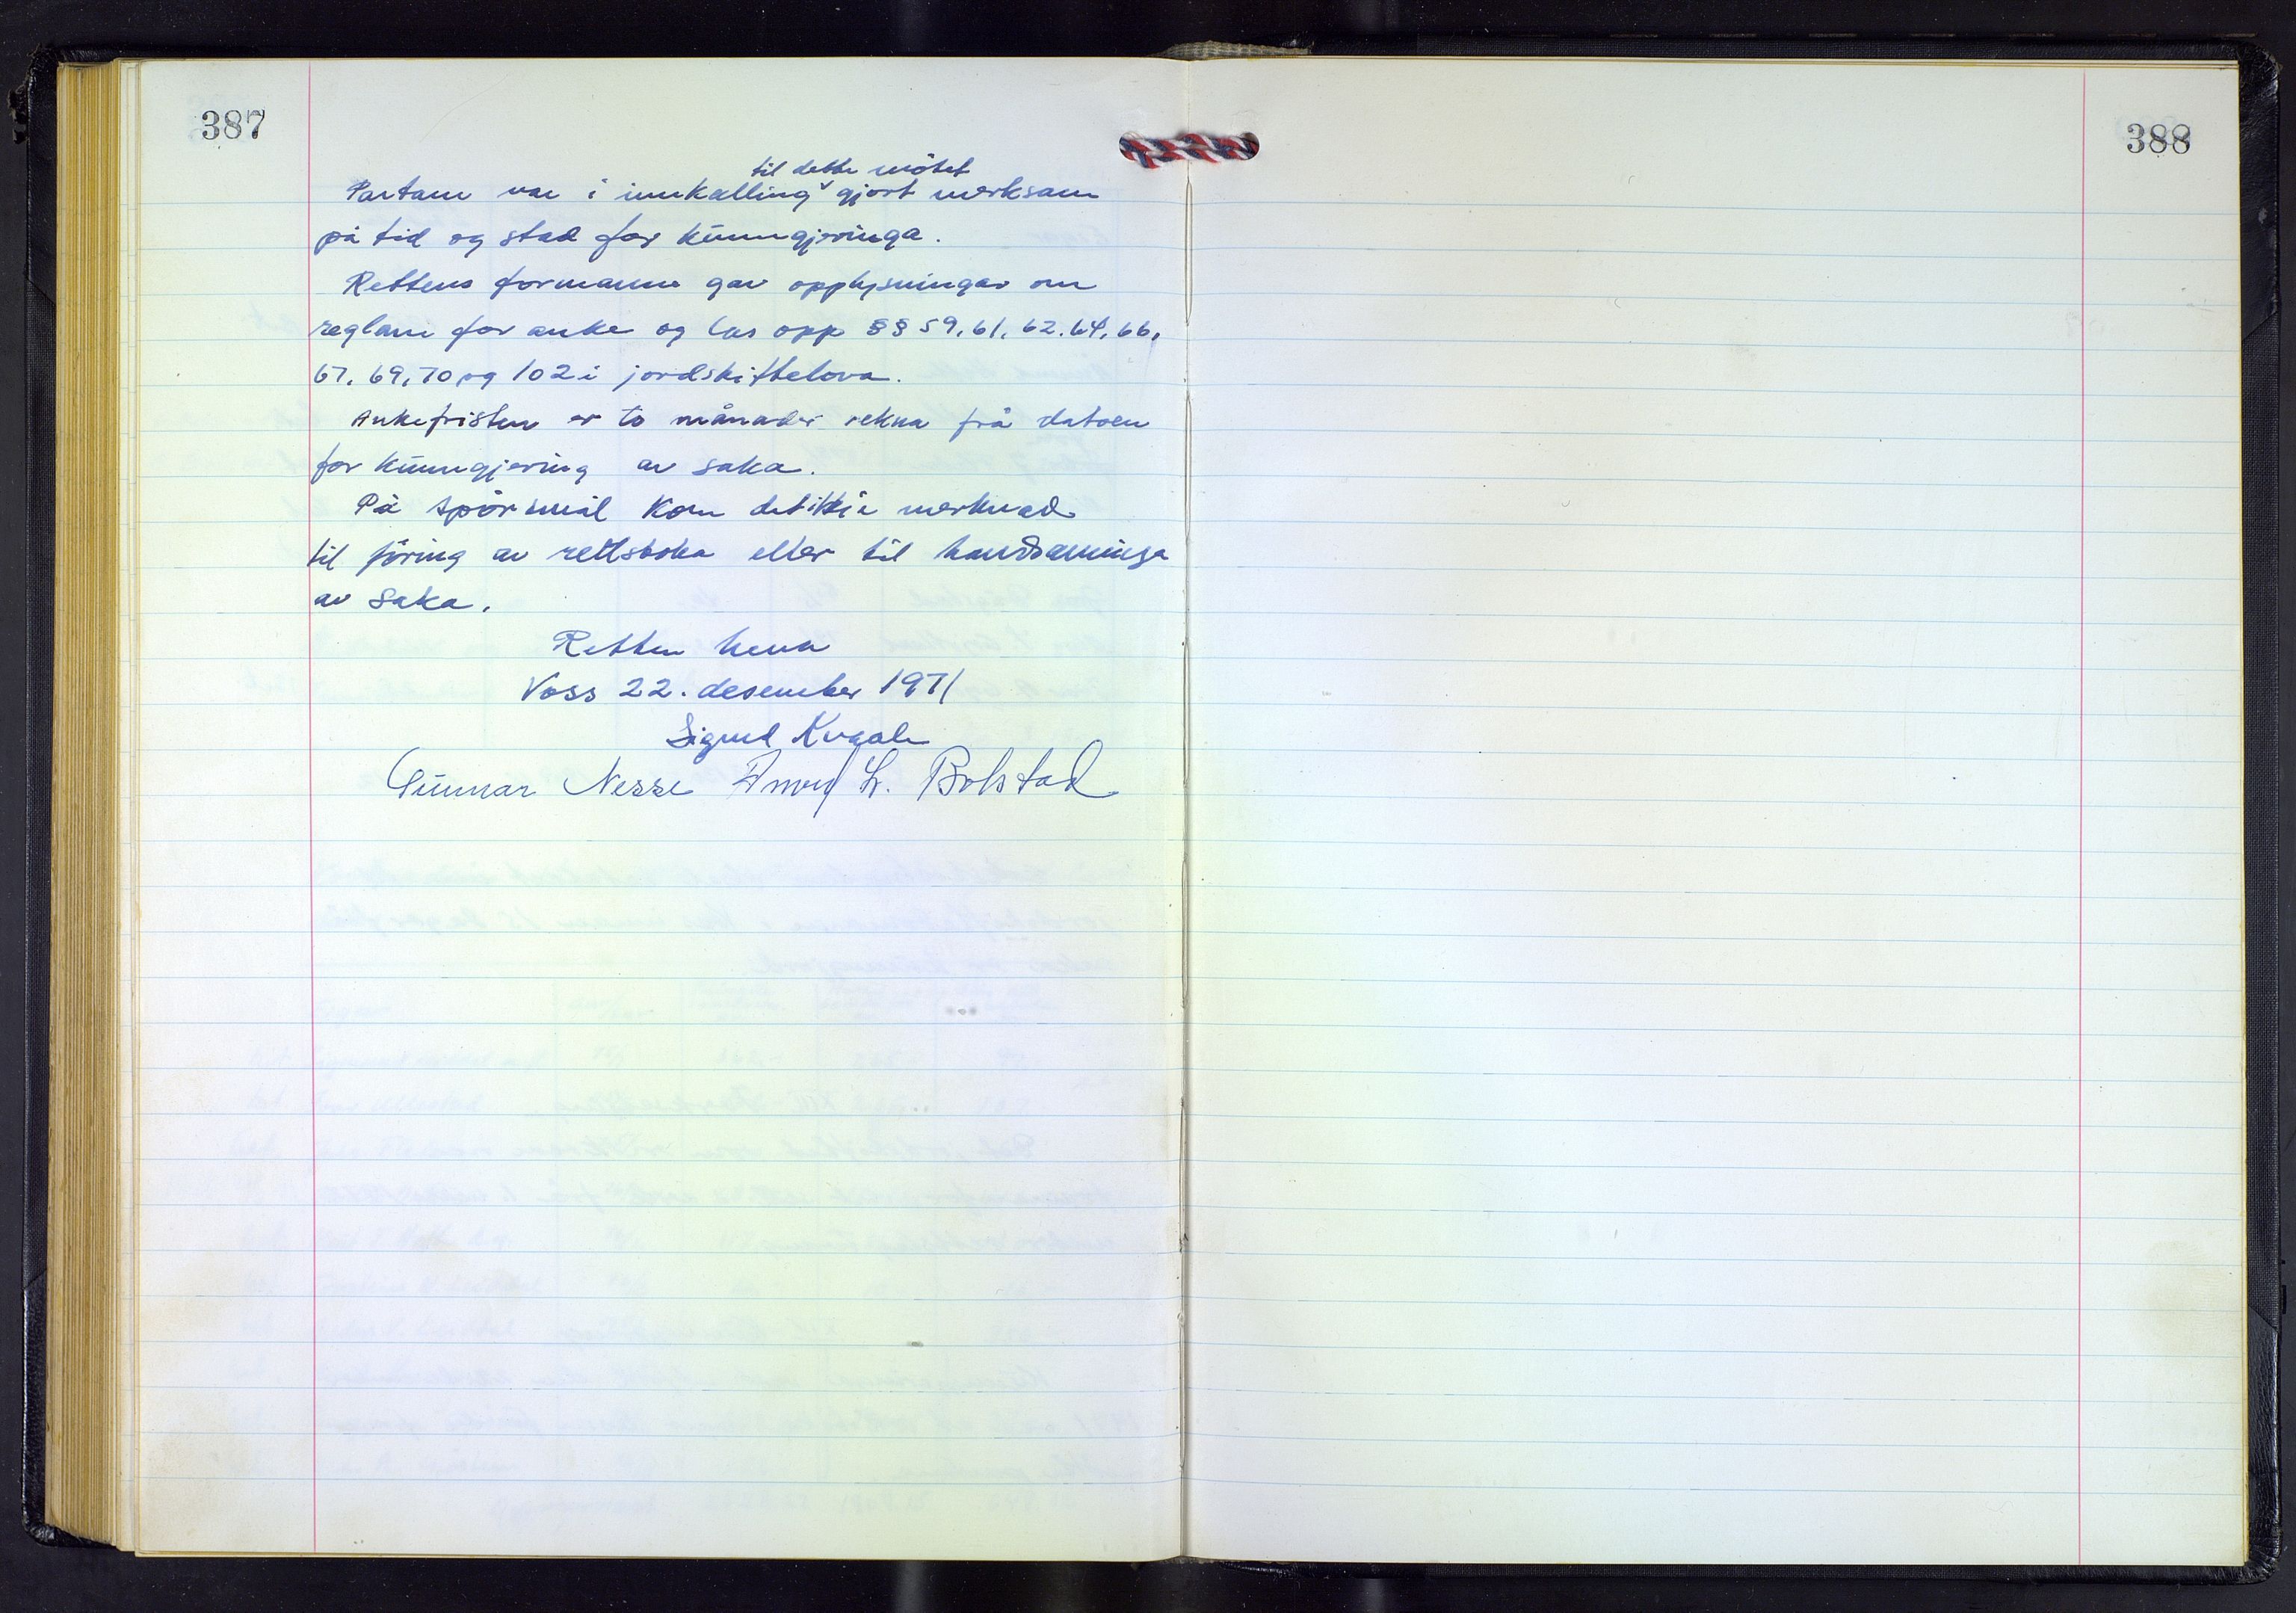 387
388
til dette mötet
Partane var i innkalling ˅ gjort merksam
på tid og stad for kunngjeringa.
Rettens formann gav opplysningar om
reglane for anke og las opp §§ 59, 61, 62. 64, 66,
67, 69, 70 og 102 i jordskiftelova.
Ankefristen er to månader rekna frå datoen
for kunngjering av saka.
På spörsmål kom det ikkje merknad
til föring av rettsboka eller til handsaminga
av saka.
Retten heva
Voss 22. desember 1971
Sigurd Kvaale
Gunnar Nesse L. Bolstad